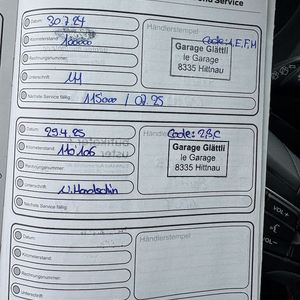 Service
Datum: 30.7.24
Händlerstempel
Code: 1, E, F, H
Kilometerstand: 100000
Garage Glättli
le Garage
8335 Hittnau
Rechnungsnummer:
Unterschrift
Nächste Service fällig: 115000 / 07.25
Datum: 29.4.25
Code: 2, B, C
Kilometerstand: 110106
Händlerstempel
Garage Glättli
le Garage
8335 Hittnau
Rechnungsnummer:
Unterschrift
Nächste Service fällig:
Datum:
Händlerstempel
Kilometerstand:
Rechnungsnummer:
Unterschrift
VOL +